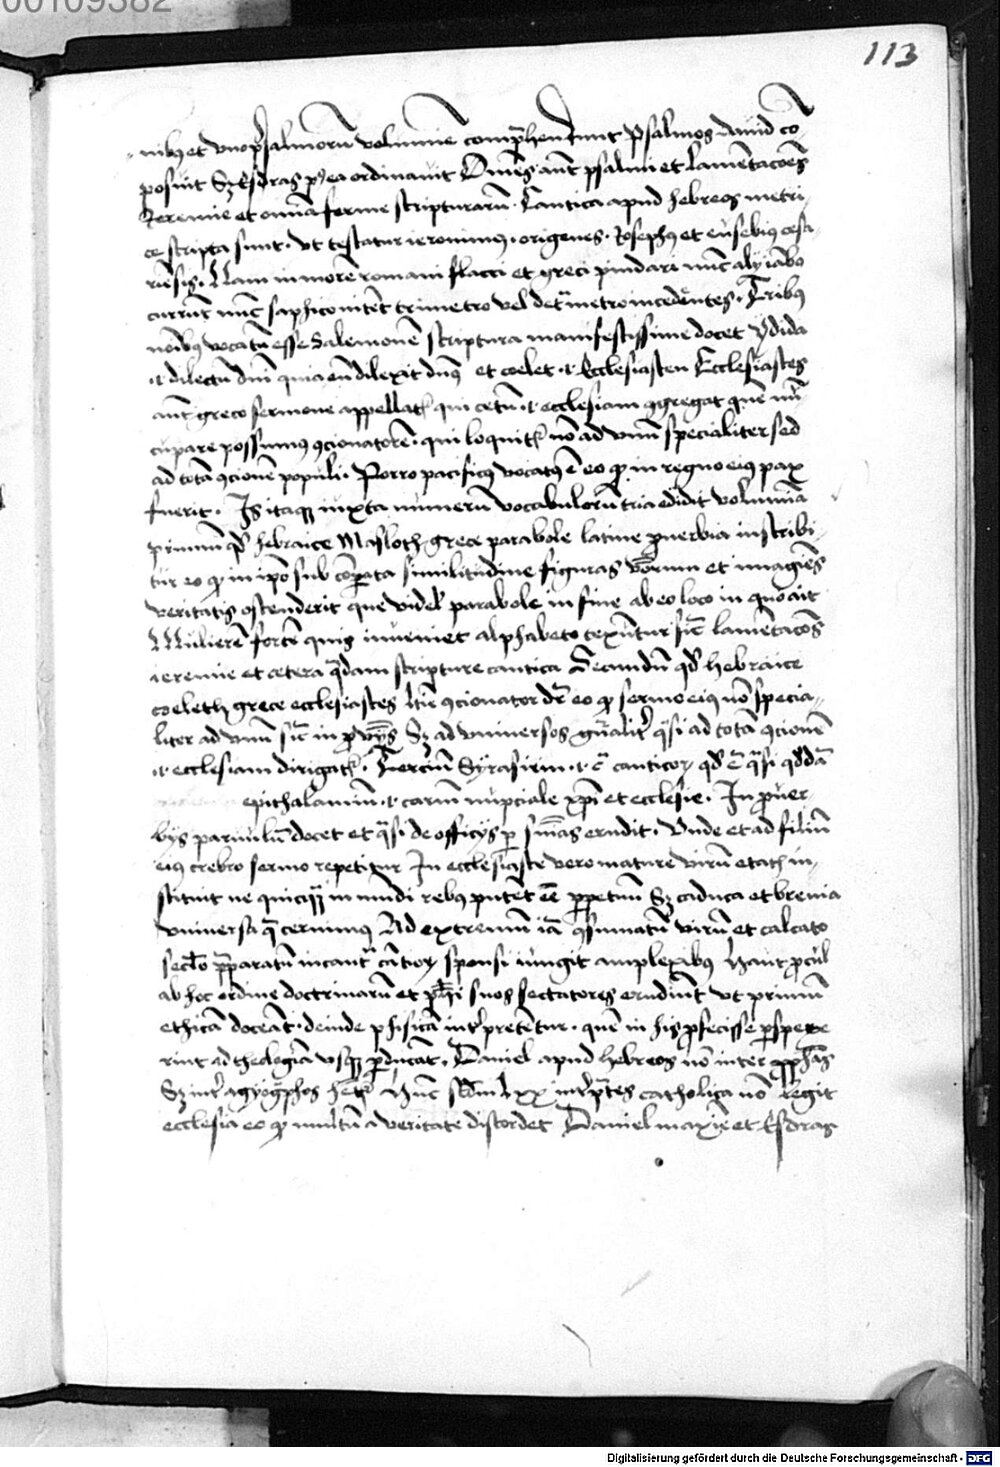 00109382
113
nibꝫ et vno psalmorū volumine comprehendunt Psalmos dauid cō-
posuit Sꝫ Esdras postea ordinauit Omnes autē psalmi et lamētacoēs
Jeremie et omīa ferme scripturarū. Cantica apud hebreos metri-
ce scripta sunt. Vt testatur ieronimus. origenes. Josephꝰ et eusebius cesa-
riēsis. Nam in morē romani flacci et greci pindari nūc alij iābo
currūt nūc saphico nitēt trimetro vel detrametro incedentes. Tribꝰ
noībus vocatū esse Salemonē scriptura manifestissime docet Ydida
.i. dilectū dnī quia eū dilexit dnꝰ et coelet .i. Ecclesiasten Ecclesiastes
autē greco sermone appellatur qui cetū .i. ecclesiam ꝯgregat quē nū-
cupare possumus ꝯcionatorē. qui loquitur nō ad vnū specialiter sed
ad totā ꝯcionē populi. Porro pacificus vocatꝰ ē eo ꝙ in regno eius pax
fuerit. Is itaqꝫ iuxta numerū vocabulorū tria edidit volumīa
primum qd̄ hebraice Masloth grece parabole latine ꝓuerbia inscribi-
tur eo ꝙ in ipo sub cōparata similitudine figuras v̄borum et imagiēs
veritatis ostenderit que videlꝫ parabole in fine ab eo loco in quo ait
Mulierē fortē quis inueniet alphabeto texūtur sicut lamētacōes
ieremie et cetera quedam scripture cantica Secundū qd̄ hebraice
coeleth grece ecclesiastes latine ꝯcionator dr̄ eo ꝙ sermo eius nō specia-
liter ad vnū sicut in ꝓuerbijs Sꝫ ad vniuersos generaliter quasi ad totā ꝯcionē
.i. ecclesiam dirigatur. Terciū Syrasirim .i. cantica canticorꝫ qd̄ ē quasi qd̄dā
epithalamiū .i. carmē nupciale xp̄i et ecclesie. In ꝓuer-
bijs paruulū docet et quasi de officijs ꝑ sentencias erudit. Vnde et ad filiū
eius crebro sermo repetitur In ecclesiaste vero mature virū etatis in-
stituit ne quicqꝫ in mundi rebus putet esse ꝑpetuū Sꝫ caduca et breuia
vniuersa que cernimus Ad extremū iā ꝯsumatū virū et calcato
seculo p̄paratū in canticis canticorꝫ sponsi iungit amplexibus Haut ꝓcul
ab hoc ordine doctrinarū et phi suos sectatores erudiūt vt primū
ethicā doceāt. deinde phisicā interpretentur. quē in his ꝓfecisse ꝑspexe
rint ad theologiā vsqꝫ ꝑducāt. Daniel apud hebreos nō inter ꝓphetas
Sꝫ inter agyographos habetur Hunc secundum lxx interpretes catholica nō legit
ecclesia eo ꝙ multū a veritate discordet Daniel maxime et Esdras
Digitalisierung gefördert durch die Deutsche Forschungsgemeinschaft - DFG